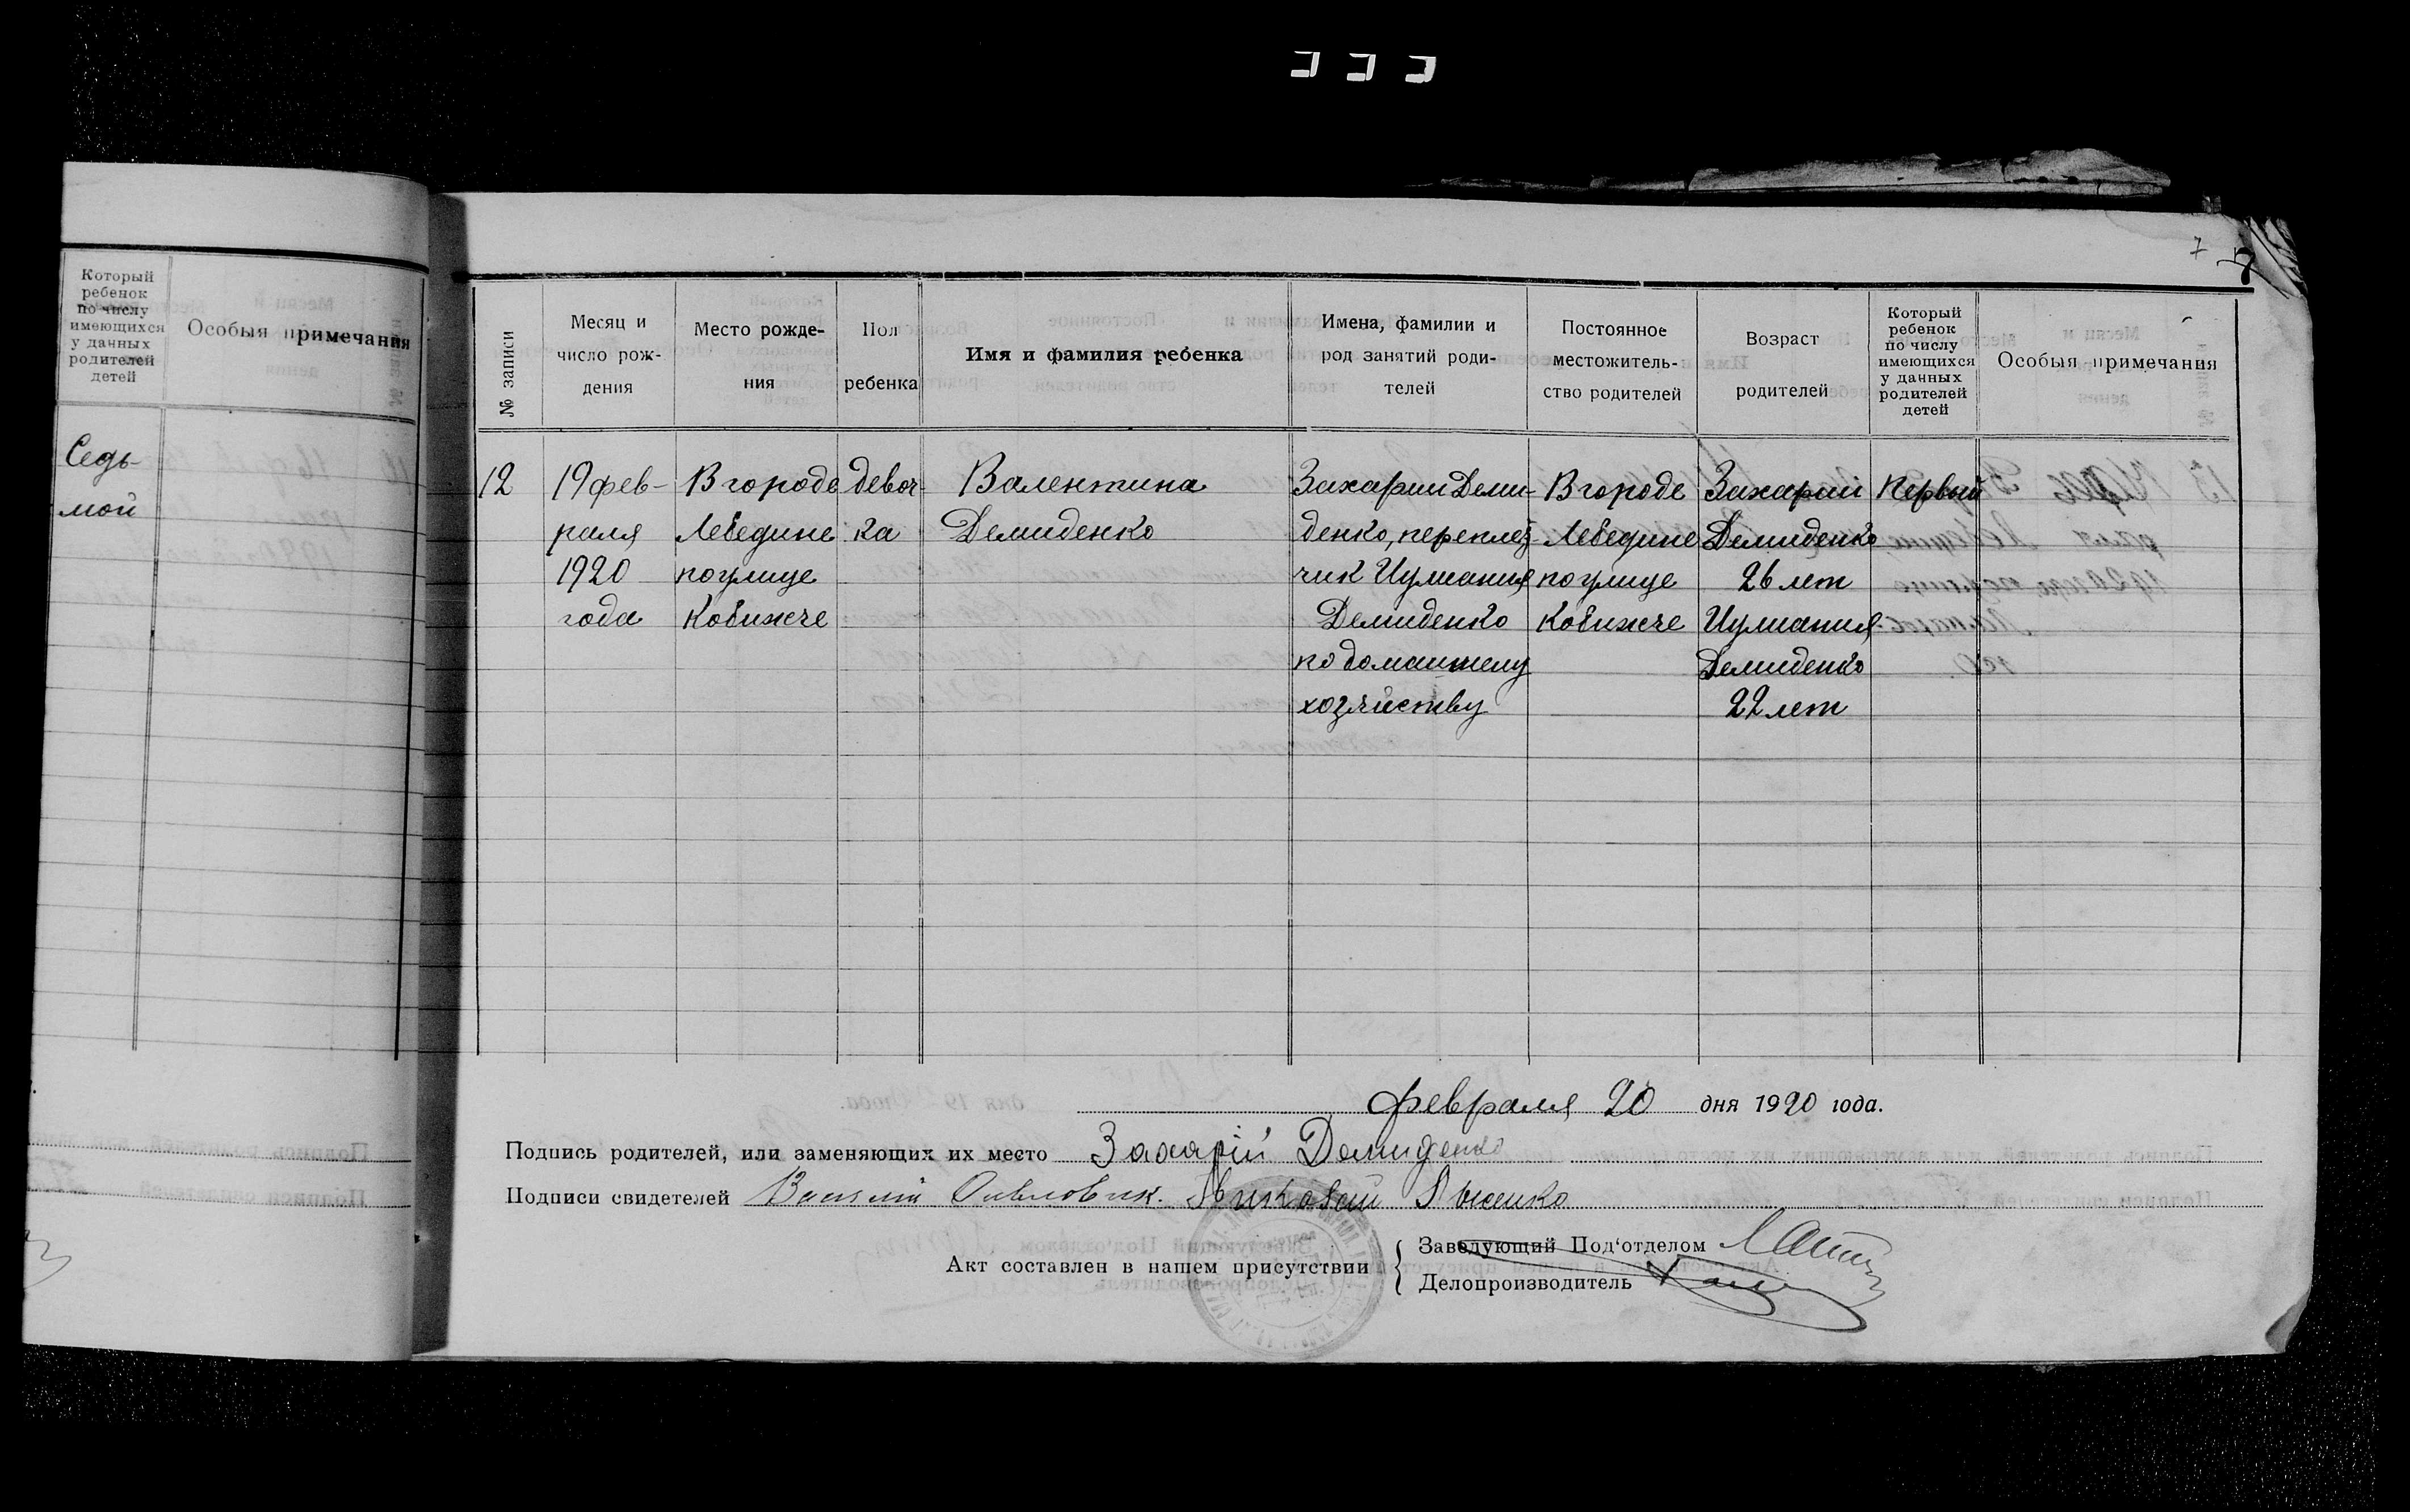 7 7
Который
ребенок
по числу
имеющихся
у данных
родителей
детей
Особыя примечания
Седь-
мой
№ записи
Месяц и
число рож-
дения
Место рожде-
ния
Пол
ребенка
Имя и фамилия ребенка
Имена, фамилии и
род занятий роди-
телей
Постоянное
местожитель-
ство родителей
Возраст
родителей
Который
ребенок
по числу
имеющихся
у данных
родителей
детей
Особыя примечания
12
19 фев-
раля
1920
года
В городе
Лебедине
по улице
Кобижче
девоч-
ка
Валентина
Демиденко
Захарий Деми-
денко, переплет-
чик Иулиания
Демиденко
по домашнему
хозяйству
В городе
Лебедине
по улице
Кобижче
Захарий
Демиденко
26 лет
Иулиания
Демиденко
22 лет
Первый
февраля 20 дня 1920 года.
Подпись родителей, или заменяющих их место Захарій Демиденко
Подписи свидетелей
Акт составлен в нашем присутствии
Заведующий Под'отделом
Делопроизводитель